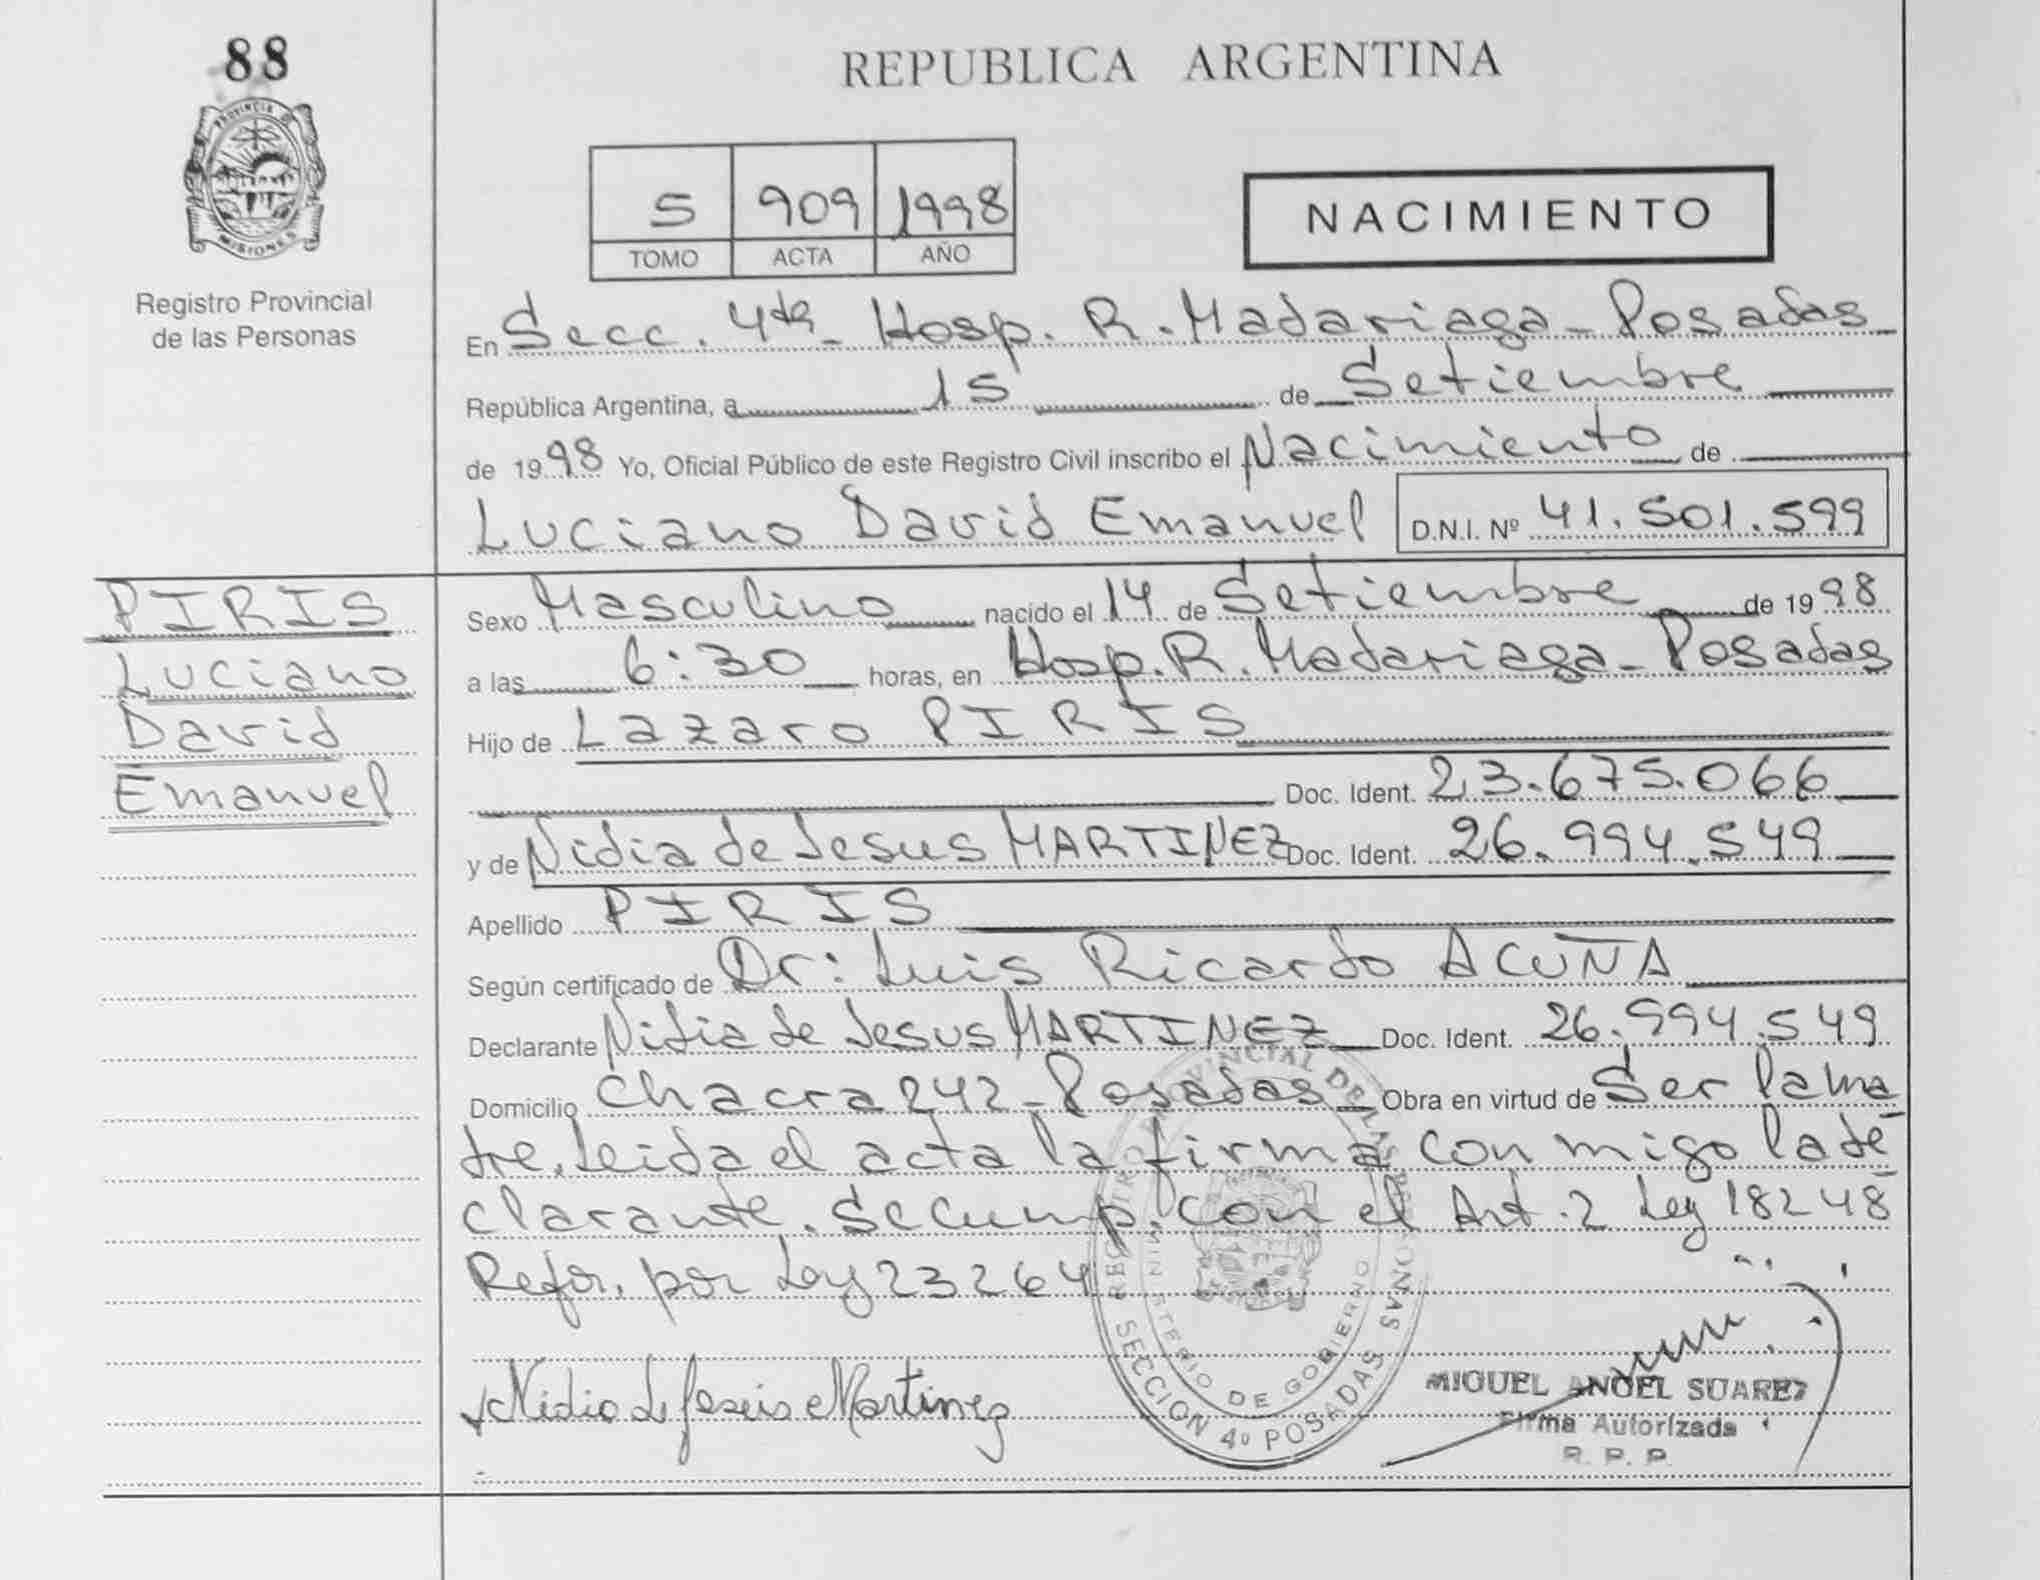 88
PROVINCIA D
MISIONES
Registro Provincial
de las Personas
REPUBLICA ARGENTINA
5 909 1998
TOMO ACTA AÑO
NACIMIENTO
En Secc. 4ta - Hosp. R. Madariaga - Posadas
República Argentina, a 15 de Setiembre
de 1998 Yo, Oficial Público de este Registro Civil inscribo el Nacimiento de
Luciano David Emanuel D.N.I. Nº 41.501.599
PIRIS
Luciano
David
Emanuel
Sexo Masculino nacido el 14 de Setiembre de 1998
a las 6:30 horas, en Hosp. R. Madariaga - Posadas
Hijo de Lazaro PIRIS
Doc. Ident. 23.675.066
y de Nidia de Jesus MARTINEZ Doc. Ident. 26.994.549
Apellido PIRIS
Según certificado de Dr: Luis Ricardo ACUÑA
Declarante Nidia de Jesus MARTINEZ Doc. Ident. 26.994.549
Domicilio Chacra 242 - Posadas Obra en virtud de Ser la ma
dre. Leida el acta la firma con migo la de
clarante. Se Cump. con el Art. 2 Ley 18248
Refor. por Ley 23264
Nidia d Jesus Martinez
MIGUEL ANGEL SUAREZ
Firma Autorizada
R. P. P.
REGISTRO PROVINCIAL DE LAS PERSONAS
MINISTERIO DE GOBIERNO
SECCION 4º POSADAS